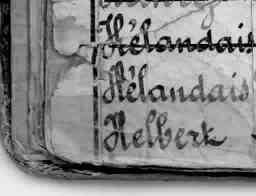 Hélandais
Hélandais
Helbert